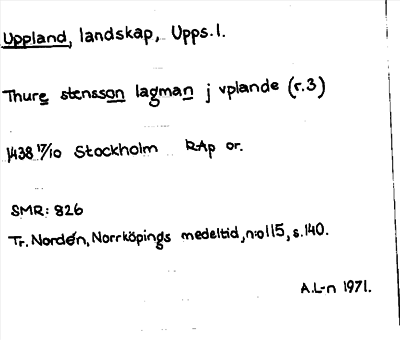 Uppland, landskap, Upps.l.
Thure stensson lagman j vplande (r.3)
1438 17/10 Stockholm RAp or.
SMR: 826
Tr. Nordén, Norrköpings medeltid, n:o 115, s.140.
A.L-n 1971.